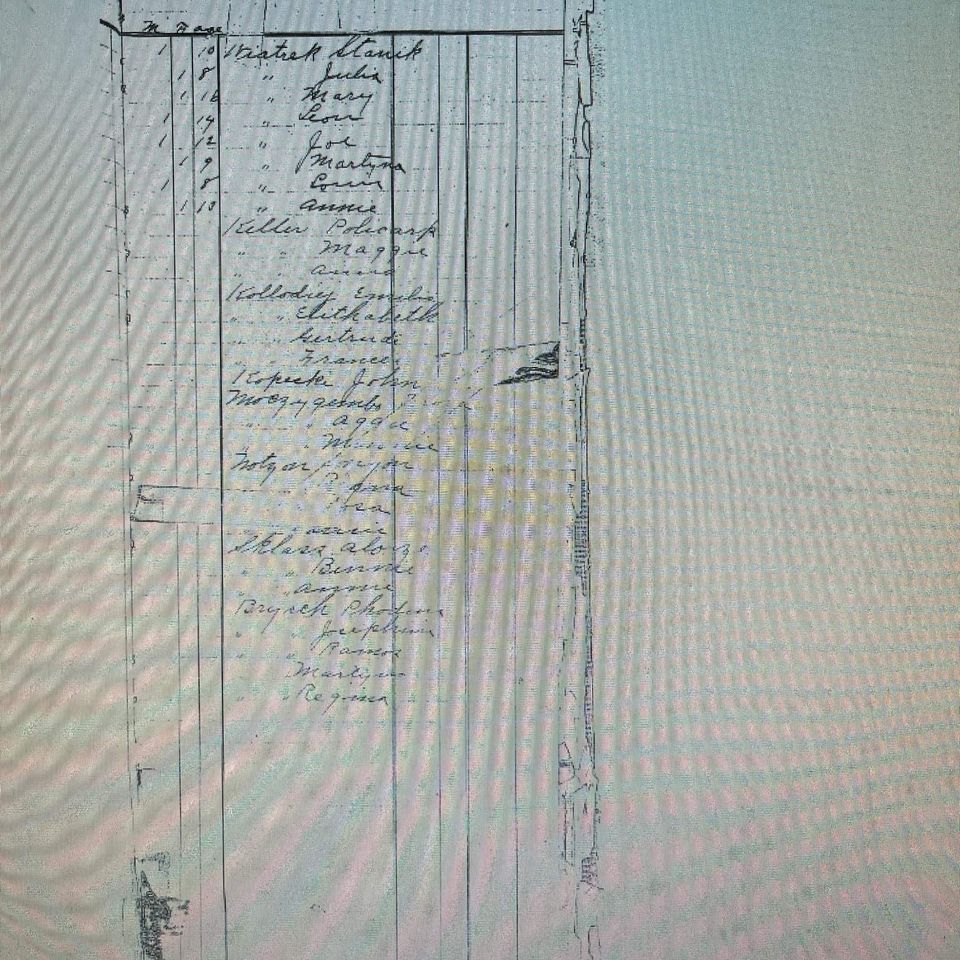 M F age
1 10 Kiatrek Stanik
1 8 " Julia
1 16 " Mary
1 14 " Leon
1 12 " Joe
1 9 " Martyna
1 8 " Louis
1 13 " Annie
Keller Policarp
" " Maggie
" " Anna
Kollodziej Emilia
" " Elithabeth
" " Gertrude
" " Frances
Kopecki John
Moczygemba
" " Aggie
" " Minnie
Notzon
" "
" " Rosa
" " Annie
Sklarz Aloize
" " Bennie
" " Annie
Brysch
" " Josephine
" " Ramos
Martyna
" " Regina